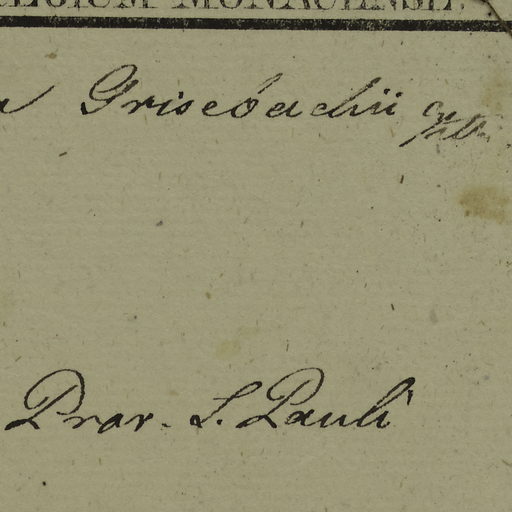 REGIUM MONACENSE.
Grisebachii
Prov. S. Pauli